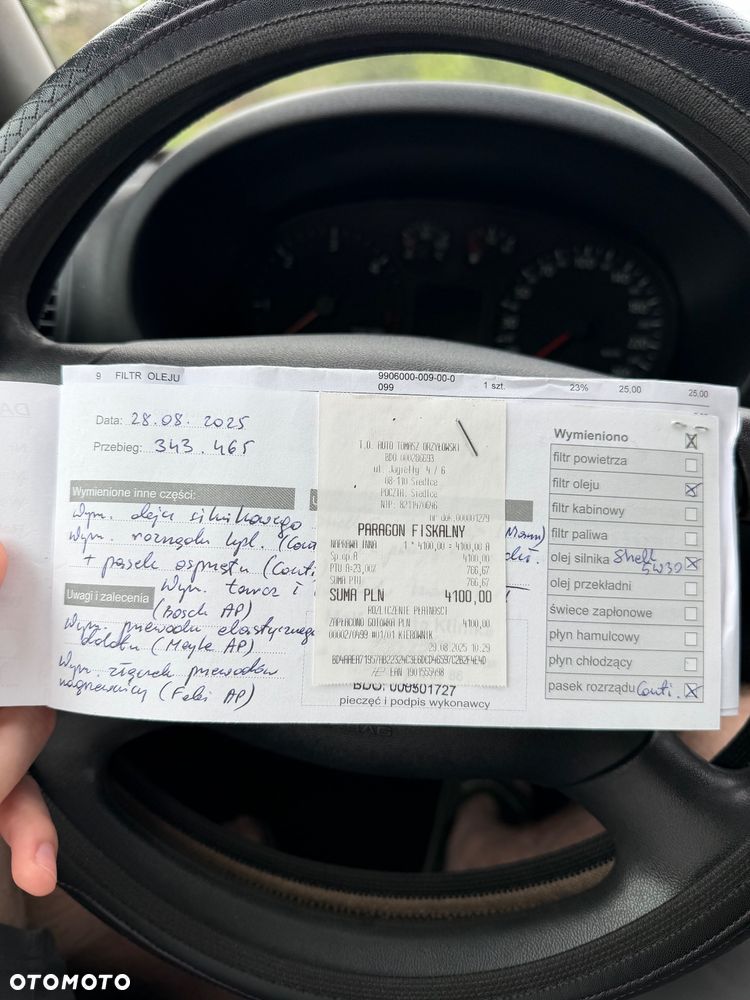 9 FILTR OLEJU 9906000-009-00-0 099 1 szt. 23% 25,00 25,00
Data: 28.08.2025
Przebieg: 343.465
Wymienione inne części:
Wym. oleju silnikowego
Wym. rozrządu kpl. (Conti
+ pasek osprzętu (Conti
Wym. tarcz i
(Bosch AP)
Uwagi i zalecenia
Wym. przewodu elastycznego
(Meyle AP)
Wym. złączek przewodów
(Febi AP)
T.O. AUTO TOMASZ ORZYŁOWSKI
BDO 000286693
ul. Jagiełły 4/6
08-110 Siedlce
POCZTA: Siedlce
NIP: 8211470646
nr dok.:000001279
PARAGON FISKALNY
NAPRAWA INNA 1 * 4100,00 = 4100,00 A
Sp.op.A 4100,00
PTU A=23,00% 766,67
SUMA PTU 766,67
SUMA PLN 4100,00
ROZLICZENIE PŁATNOŚCI
ZAPŁACONO GOTÓWKA PLN 4100,00
00002/0499 #01/01 KIEROWNIK
29.08.2025 10:29
EAN 1901559798
BDO: 000501727
pieczęć i podpis wykonawcy
Wymieniono
filtr powietrza
filtr oleju
filtr kabinowy
filtr paliwa
olej silnika Shell 5W30
olej przekładni
świece zapłonowe
płyn hamulcowy
płyn chłodzący
pasek rozrządu Conti.
OTOMOTO